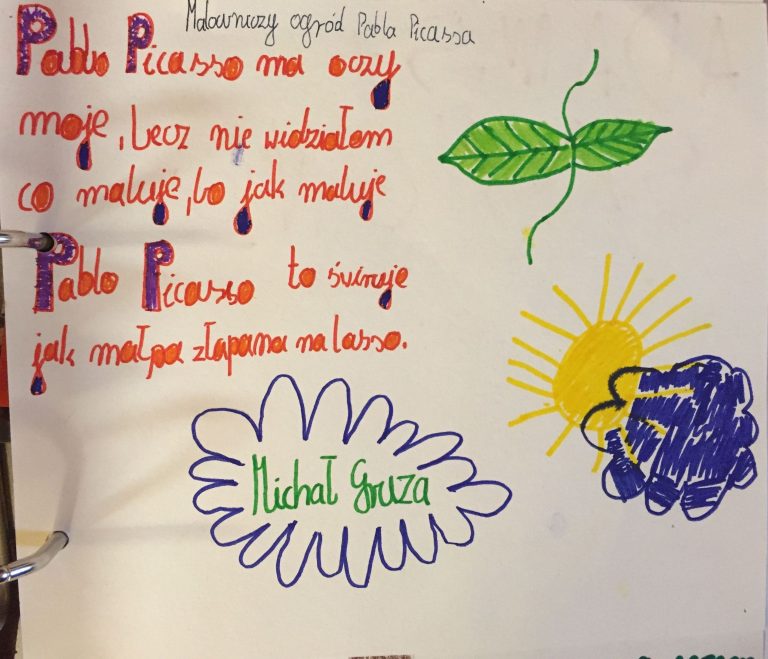 Malowniczy ogród Pabla Picassa
Pablo Picasso ma oczy
moje, lecz nie widziałom
co maluje, bo jak maluje
Pablo Picasso to świruje
jak małpa złapana na lasso.
Michał Gruza